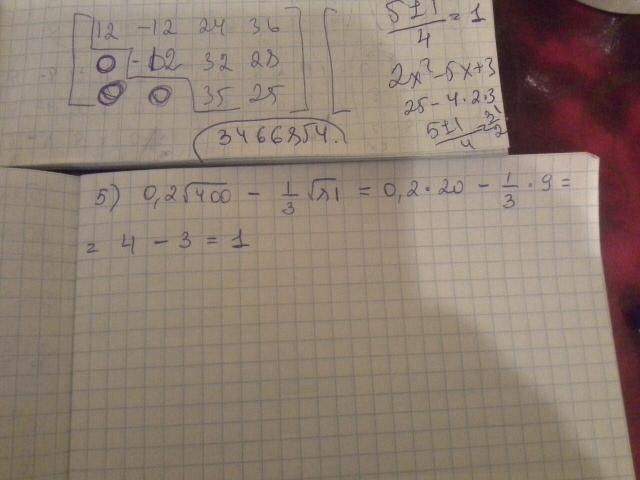 12 -12 24 36
0 -12 32 28
0 0 35 25
5±1/4 = 1
2x²-5x+3
25-4·2·3
5+1/4 = 3/2
5) 0,2√400 - 1/3 √81 = 0,2·20 - 1/3 · 9 =
= 4 - 3 = 1